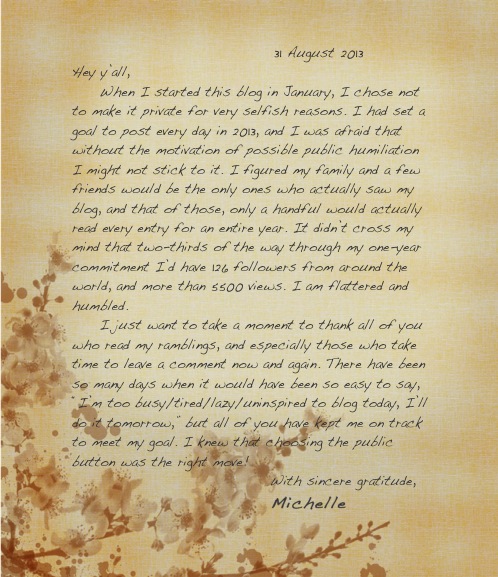 31 August 2013
Hey y'all,
When I started this blog in January, I chose not
to make it private for very selfish reasons. I had set a
goal to post every day in 2013, and I was afraid that
without the motivation of possible public humiliation
I might not stick to it. I figured my family and a few
friends would be the only ones who actually saw my
blog, and that of those, only a handful would actually
read every entry for an entire year. It didn't cross my
mind that two-thirds of the way through my one-year
commitment I'd have 126 followers from around the
world, and more than 5500 views. I am flattered and
humbled.
I just want to take a moment to thank all of you
who read my ramblings, and especially those who take
time to leave a comment now and again. There have been
so many days when it would have been so easy to say,
"I'm too busy/tired/lazy/uninspired to blog today, I'll
do it tomorrow," but all of you have kept me on track
to meet my goal. I knew that choosing the public
button was the right move!
With sincere gratitude,
Michelle